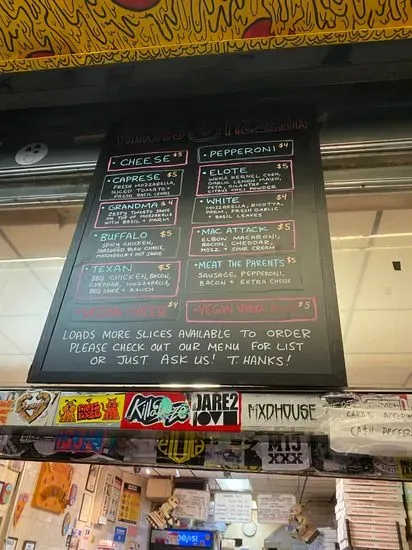 PIZZERIA
• CHEESE $3
• CAPRESE $5
FRESH MOZZARELLA,
SLICED TOMATO +
FRESH BASIL LEAVES
GRANDMA $4
ZESTY TOMATO SAUCE
ON TOP OF MOZZARELLA
WITH BASIL + PARM
• BUFFALO $5
SPICY CHICKEN,
SHREDDED BLEU CHEESE,
MOZZARELLA + HOT SAUCE
• TEXAN $5
BBQ CHICKEN, BACON,
CHEDDAR, MOZZARELLA,
BBQ SAUCE + RANCH
• VEGAN CHEESE $4
• PEPPERONI $4
• ELOTE $5
WHOLE KERNEL CORN,
GARLIC LEMON MAYO,
FETA, CILANTRO +
CITRUS CHILI POWDER
• WHITE $4
MOZZARELLA, RICOTTA,
PARM, FRESH GARLIC
+ BASIL LEAVES
• MAC ATTACK $5
ELBOW MACARONI,
BACON, CHEDDAR,
MOZZ. + SOUR CREAM
• MEAT THE PARENTS $5
SAUSAGE, PEPPERONI,
BACON + EXTRA CHEESE
• VEGAN $5
LOADS MORE SLICES AVAILABLE TO ORDER
PLEASE CHECK OUT OUR MENU FOR LIST
OR JUST ASK US! THANKS!
KillsOze
JABE2
MXDHOUSE
CARDS
CASH PREFERRED
MTJ
XXX
pepsi